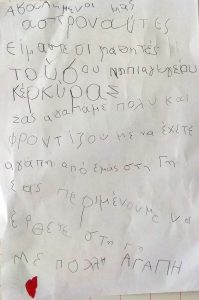 ΑΓΑΠΗΜΕΝΟΙ ΜΑς
αστροναύτες
Είμαστε οι μαθητές
του 5ου νηπιαγωγείου
ΚέρΚυρας
σας αγαπάμε πολύ και
φροντίζουμε να έχετε
αγάπη από εμάς στη Γη
Σας περιμένουμε να
έρθετε στη Γη
ΜΕ ΠΟΛΛΗ ΑΓΑΠΗ